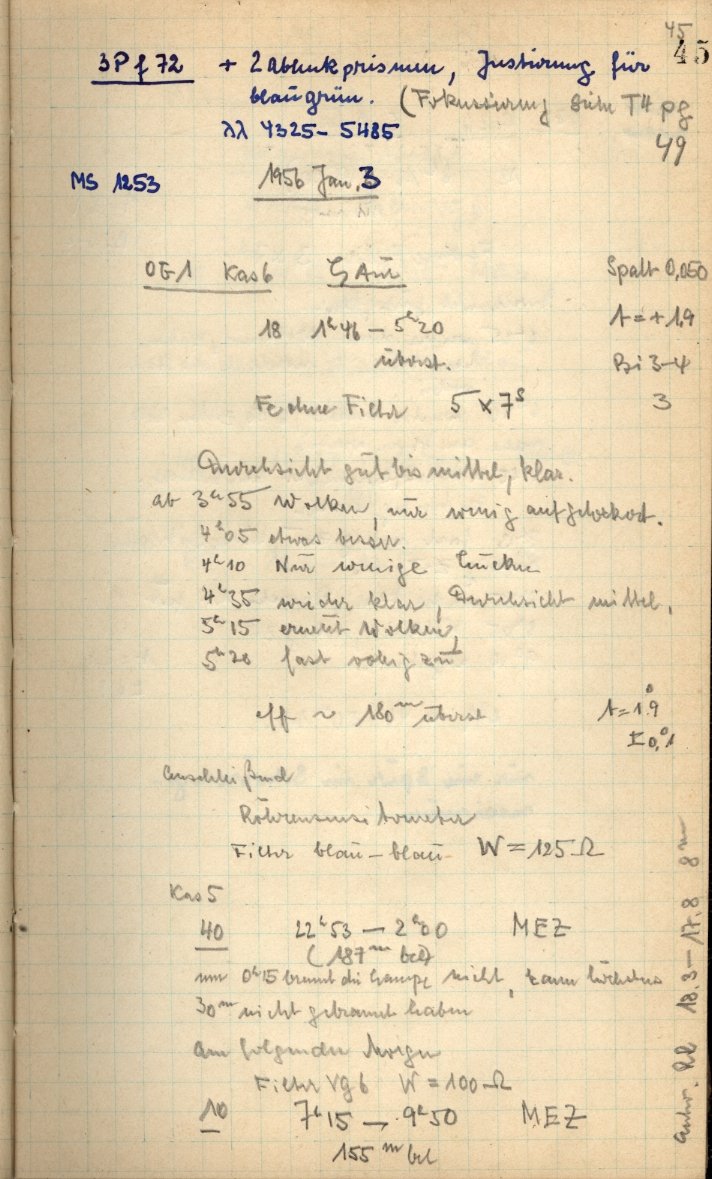 45
45
3P f 72 + 2 Ablenkprismen, Justierung für
blaugrün. (Fokussierung siehe T4 pg
49
λλ 4325 - 5485
MS 1253 1956 Jan. 3
OG1 Kas 6 ζ Aur Spalt 0,050
18 1h46 – 5h20 t = +1,9
überst. Bi 3-4
Fe ohne Filter 5 x 7s 3
Durchsicht gut bis mittel, klar.
ab 3h55 Wolken, nur wenig aufgelockert.
4h05 etwas besser.
4h10 Nur wenige Lücken
4h35 wieder klar, Durchsicht mittel.
5h15 erneut Wolken,
5h20 fast völlig zu
eff ~ 180m überst t = 1°.9
± 0,°1
Anschließend
Röhrensensitometer
Filter blau – blau W = 125 Ω
Kas 5
40 22h53 – 2h00 MEZ
(187m bel)
um 0h15 brennt die Lampe nicht, kann höchstens
30m nicht gebrannt haben
Am folgenden Morgen
Filter VG6 W = 100 Ω
10 7h15 → 9h50 MEZ
155m bel
18.3 – 17.8 8m